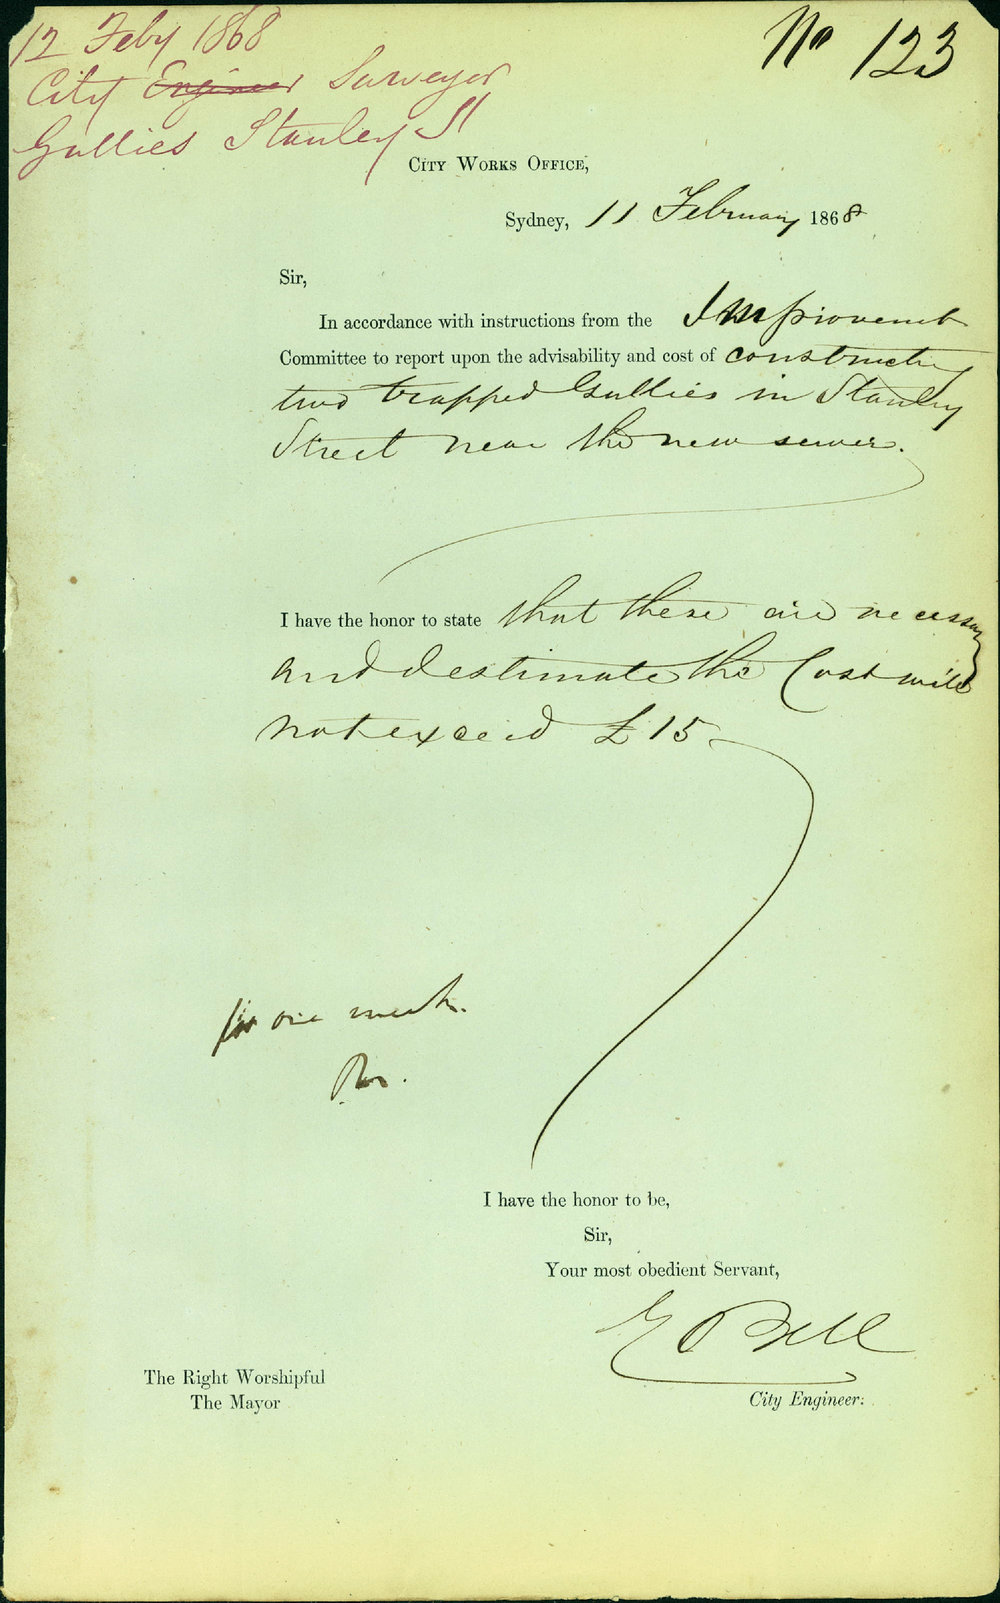 12 Feby 1868
City Engineer Surveyor
Gullies Stanley St
No 123
City Works Office,
Sydney, 11 February 1868
Sir,
In accordance with instructions from the Improvement
Committee to report upon the advisability and cost of constructing
two trapped Gullies in Stanley
Street near the new sewer.
I have the honor to state that these are necessary
and I estimate the Cost will
not exceed £15
one week.
I have the honor to be,
Sir,
Your most obedient Servant,
E Bell
The Right Worshipful
The Mayor
City Engineer.